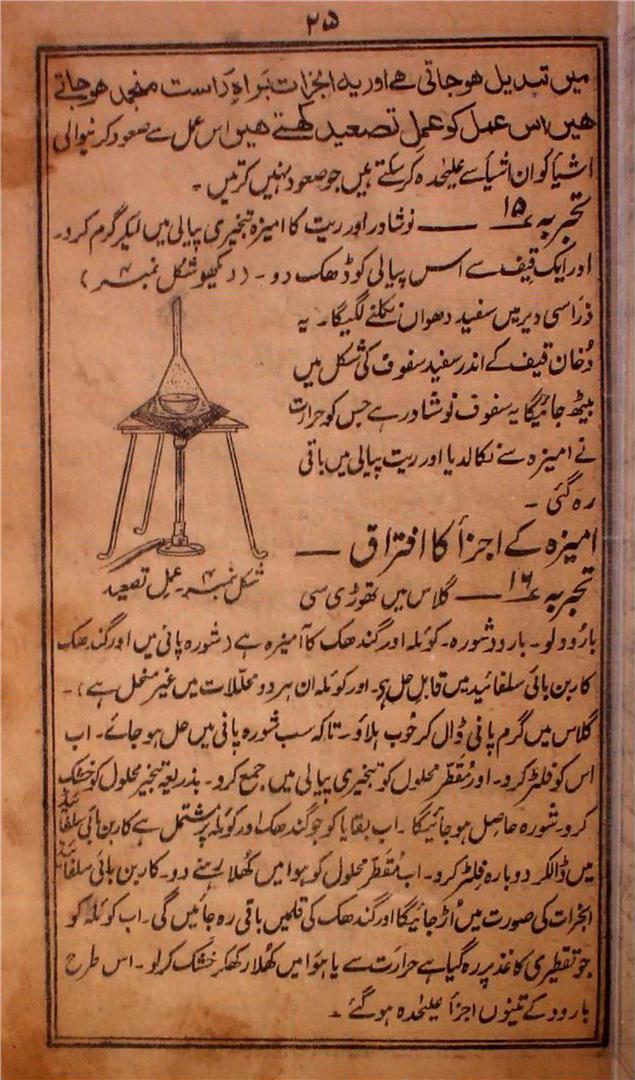 ۲۵
میں تبدیل ھوجاتی ھے اور یہ ابخرات براہِ راست منجمد ھوجاتے
ھیں اس عمل کو عملِ تصعید کہتے ھیں اس عمل سے صعود کرنیوالی
اشیأ کو ان اشیأ سے علیٰحدہ کرسکتے ہیں جو صعود نہیں کرتیں ۔
تجربہ ۱۵ ــــ نوشادر اور ریت کا امیزہ تبخیری پیالی میں لیکر گرم کرو۔
اور ایک قیف سے اس پیالی کو ڈھک دو ۔ (دیکھو شکل نمبر ۴)
ذرَاسی دیر میں سفید دھواں نکلنے لگیگا۔ یہ
دُخان قیف کے اندر سفید سفوف کی شکل میں
بیٹھ جائیگا یہ سفوف نوشادر ہے جس کو حرارت
نے امیزہ سے نکالدیا اور ریت پیالی میں باقی
رہ گئی ۔
شکل نمبر ۴ ۔ عملِ تصعید
امیزہ کے اجزأ کا افتراق ــــ
تجربہ ۱۶ ــــ گلاس میں تھوڑی سی
بارُود لو ۔ بارود شورہ ۔ کوئلہ اور گندھک کا آمیزہ ہے (شورہ پانی میں اور گندھک
کاربن بائی سلفائیڈ میں قابلِ حل ہے۔ اور کوئلہ ان ہر دو محلّلات میں غیر منحل ہے) ۔
گلاس میں گرم پانی ڈال کر خوب ہلاؤ ۔ تاکہ سب شورہ پانی میں حل ہو جائے۔ اب
اس کو فلٹر کرو۔ اور مُقطّر محلول کو تبخیری پیالی میں جمع کرو۔ بذریعہ تبخیر محلول کو خشک
کرو۔ شورہ حاصل ہو جائیگا ۔ اب بقایا کو جو گندھک اور کوئلہ پر مشتمل ہے کاربن بائی سلفائیڈ
میں ڈالکر دوبارہ فلٹر کرو۔ اب مُقطّر محلول کو ہوا میں کُھلا رہنے دو ۔ کاربن بائی سلفائیڈ
ابخرات کی صورت میں اُڑ جائیگا اور گندھک کی قلمیں باقی رہ جائیں گی ۔ اب کوئلہ کو
جو تقطیری کاغذ پر رہ گیا ہے حرارت سے یا ہَوا میں کُھلا رکھکر خشک کرلو ۔ اس طرح
بارود کے تینوں اجزأ علیٰحدہ ہوگئے ۔